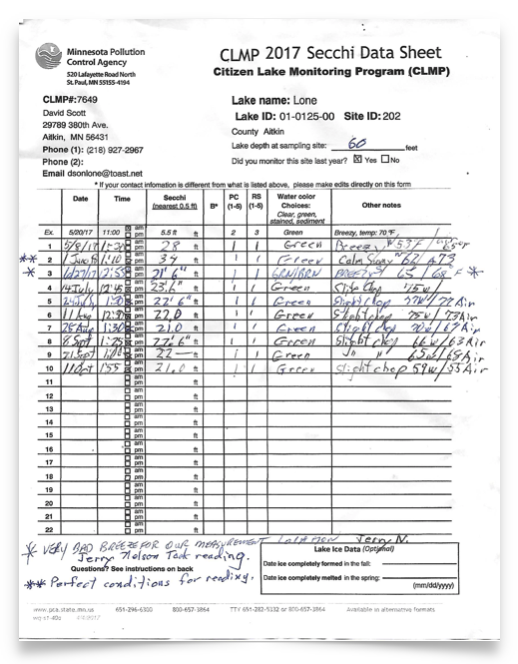 Minnesota Pollution
Control Agency
520 Lafayette Road North
St. Paul, MN 55155-4194
CLMP 2017 Secchi Data Sheet
Citizen Lake Monitoring Program (CLMP)
CLMP#:7649
David Scott
29789 380th Ave.
Aitkin, MN 56431
Phone (1): (218) 927-2967
Phone (2):
Email dsonlone@toast.net
Lake name: Lone
Lake ID: 01-0125-00 Site ID: 202
County Aitkin
Lake depth at sampling site: 60 feet
Did you monitor this site last year? ☒ Yes ☐ No
* If your contact information is different from what is listed above, please make edits directly on this form
Date Time Secchi (nearest 0.5 ft) B* PC (1-5) RS (1-5) Water color Choices: Clear, green, stained, sediment Other notes
Ex. 5/20/17 11:00 am pm 5.5 ft ft 2 3 Green Breezy, temp: 70°F
1 5/8/17 1:30 am pm 28 ft 1 1 Green 53°F
** 2 1 June 1:10 am pm 34 ft 1 1 Green Calm 62 A73
* 3 12:55 am pm 21' 6" ft 1 1 BREEZY 65 / 68 F *
4 14 July 12:45 am pm 23.6" ft 1 1 Green Chop 75w/
5 24 July 1:30 am pm 22' 6" ft 1 1 Green Slight chop 77w/77Air
6 11 Aug 12:30 am pm 22.0 ft 1 1 Green Slight chop 75w/73Air
7 28 Aug 1:30 am pm 21.0 ft 1 1 Green Slight chop 70w/67Air
8 8 Sept 1:25 am pm 22' 6" ft 1 1 Green Slight chop 66w/63Air
9 21 Sept am pm 22 — ft 1 1 Green " " 65w/68Air
10 11 Oct 1:55 am pm 21.0 ft 1 1 Green Slight chop 59w/55Air
11 am pm ft
12 am pm ft
13 am pm ft
14 am pm ft
15 am pm ft
16 am pm ft
17 am pm ft
18 am pm ft
19 am pm ft
20 am pm ft
21 am pm ft
22 am pm ft
* VERY BAD BREEZE FOR OUR MEASUREMENT LOCATION Jerry N.
Jerry Nelson Took reading.
Questions? See instructions on back
** Perfect conditions for reading.
Lake Ice Data (Optional)
Date ice completely formed in the fall:
Date ice completely melted in the spring:
(mm/dd/yyyy)
www.pca.state.mn.us 651-296-6300 800-657-3864 TTY 651-282-5332 or 800-657-3864 Available in alternative formats